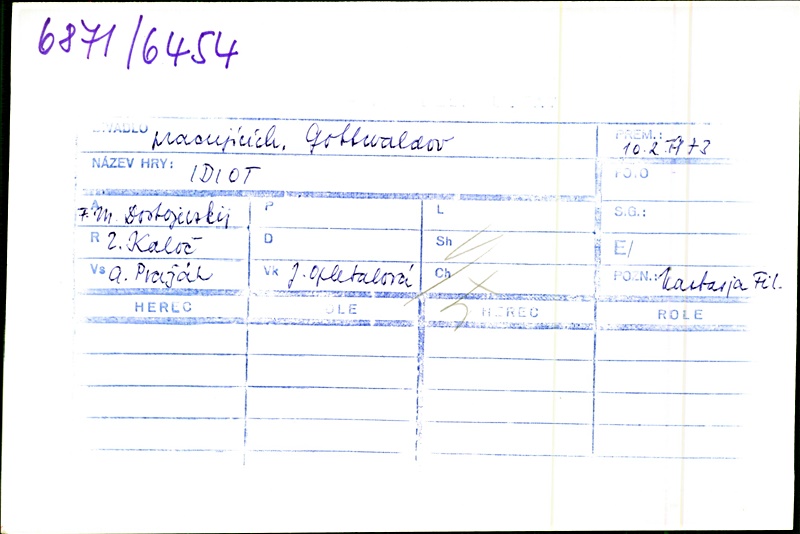 6871/6454
DIVADLO pracujících, Gottwaldov PREM.: 10.2.1973
NÁZEV HRY: IDIOT FO.O
A F. M. Dostojevskij P L S.G.:
R Z. Kaloč D Sh E/
Vs A. Pražák Vk J. Ch POZN.: Nastasja Fil.
HEREC ROLE HEREC ROLE